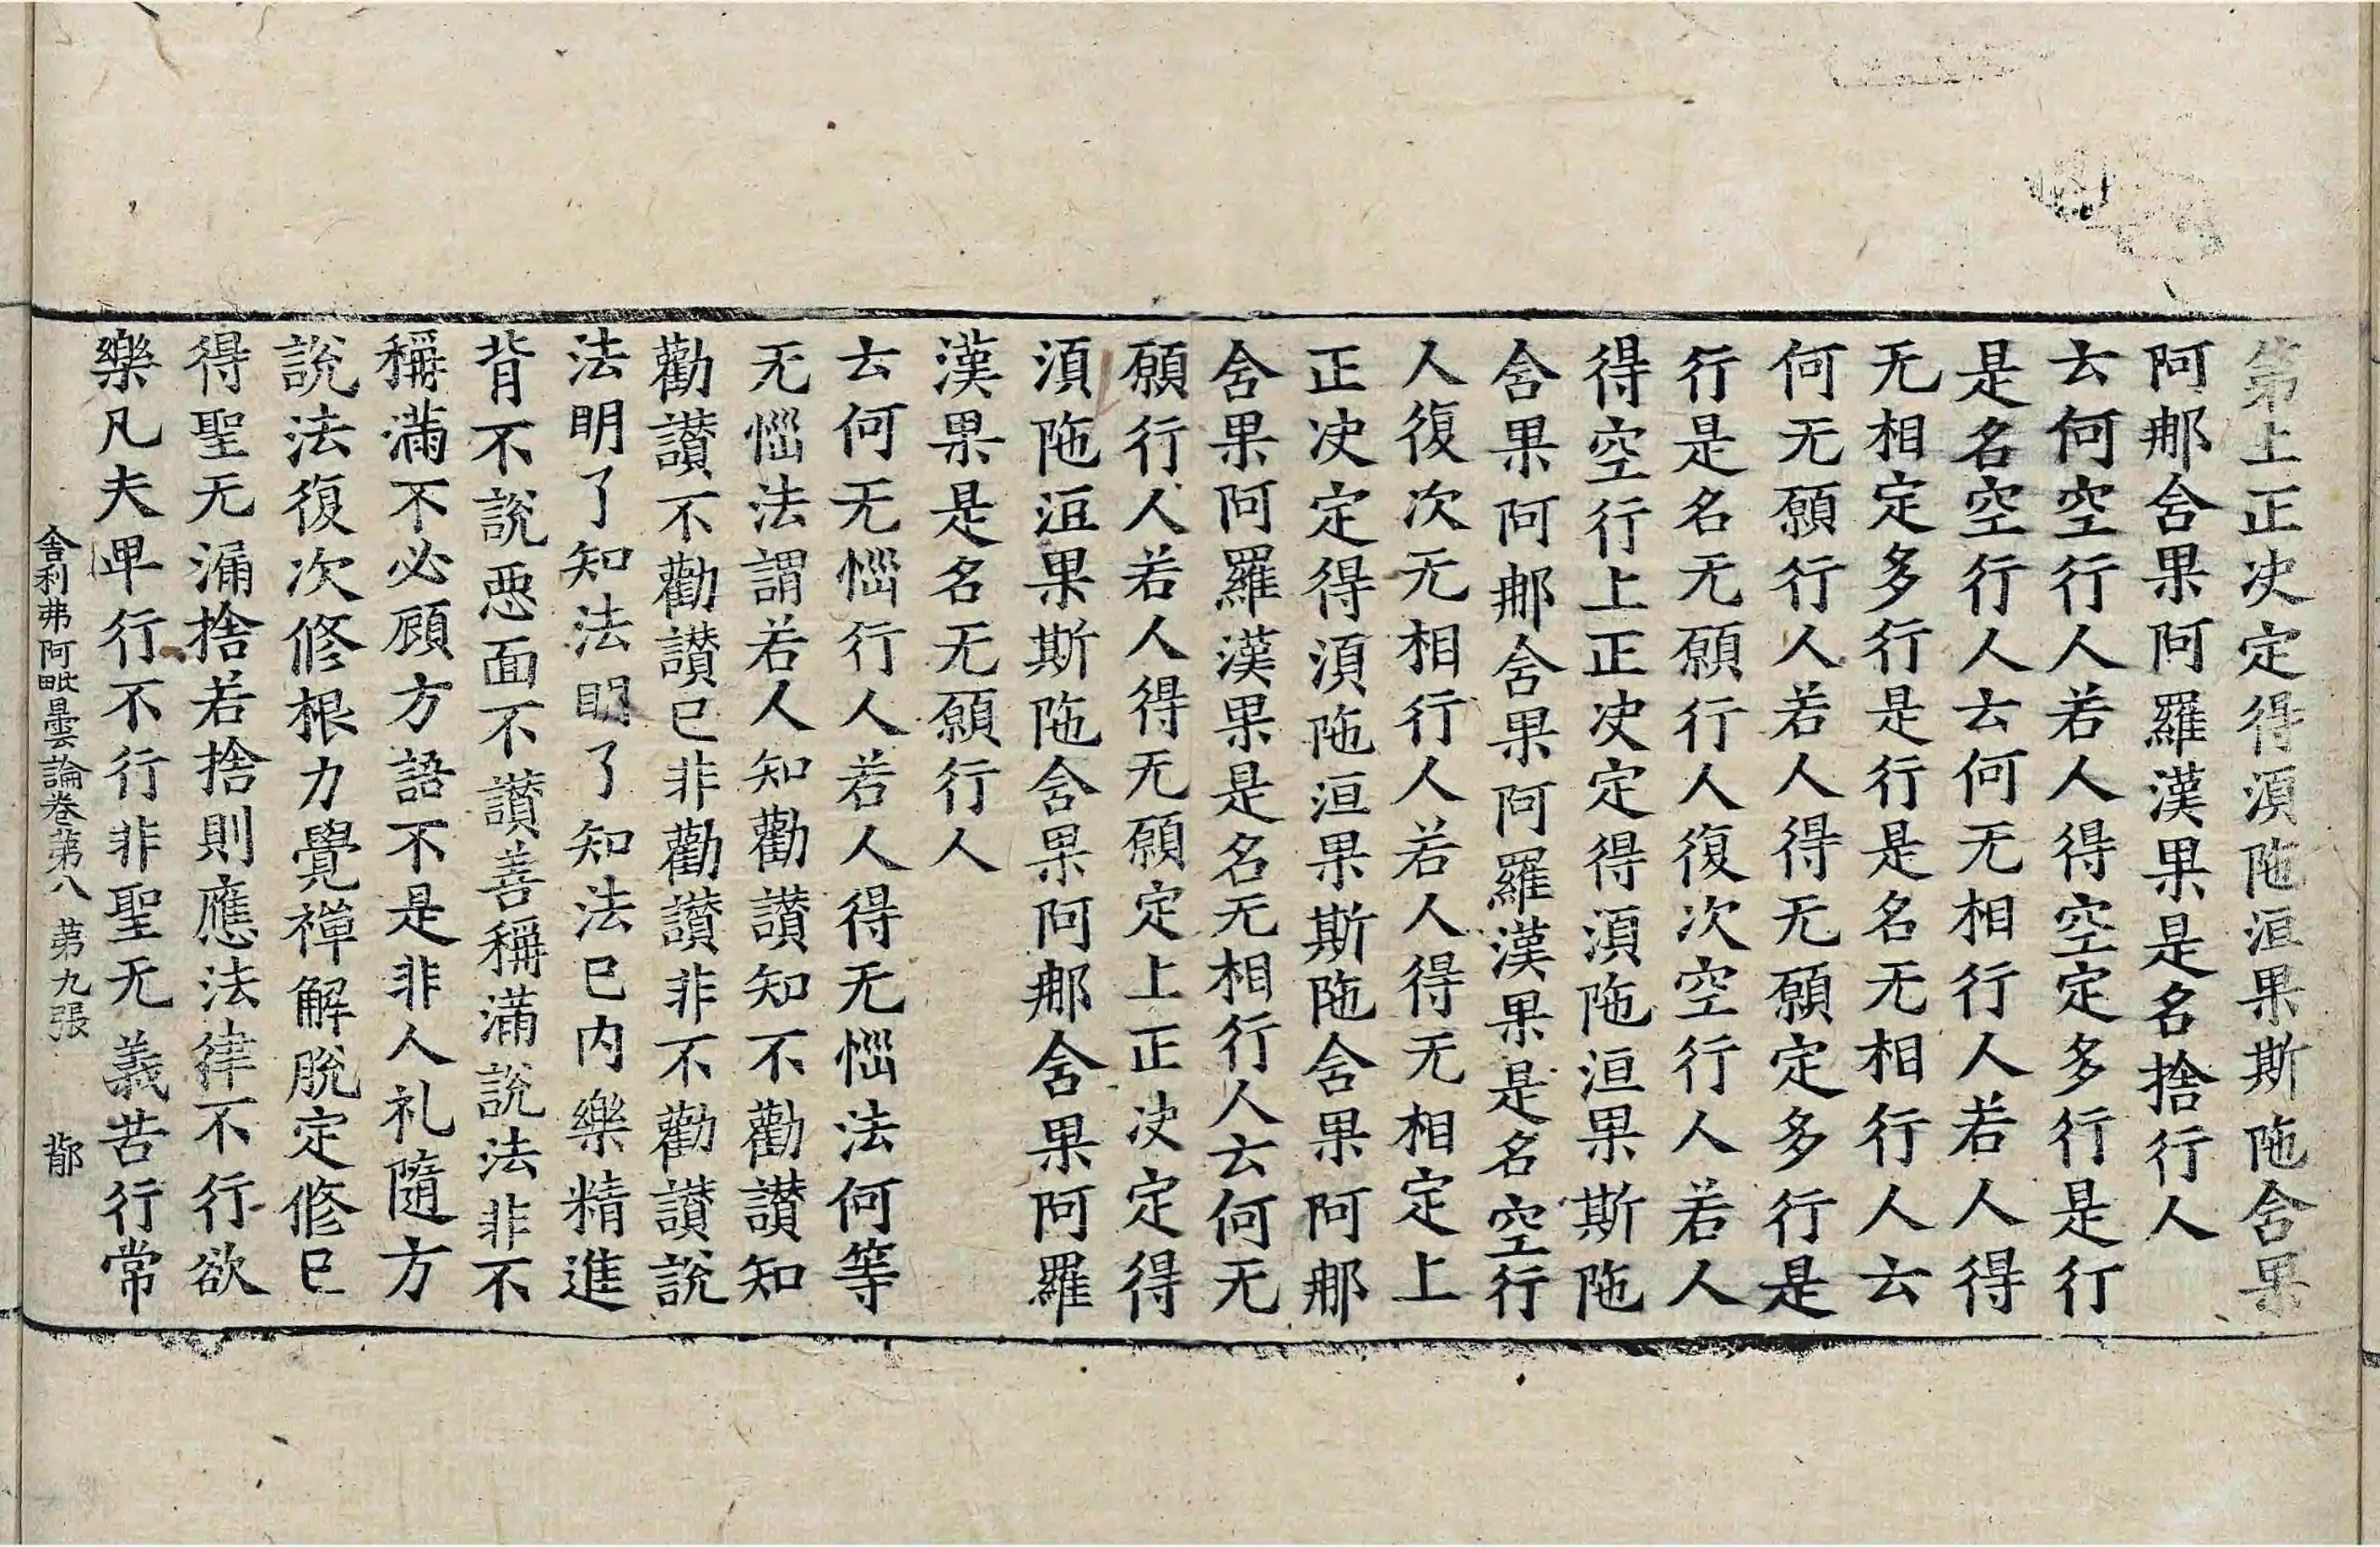 第上正决定得湏陁洹果斯陁舍果
阿那舍果阿羅漢果是名捨行人
云何空行人若人得空定多行是行
是名空行人云何无相行人若人得
无相定多行是行是名无相行人云
何无願行人若人得无願定多行是
行是名无願行人復次空行人若人
得空行上正决定得湏陁洹果斯陁
舍果阿那舍果阿羅漢果是名空行
人復次无相行人若人得无相定上
正决定得湏陁洹果斯陁舍果阿那
舍果阿羅漢果是名无相行人云何无
願行人若人得无願定上正决定得
湏陁洹果斯陁舍果阿那舍果阿羅
漢果是名无願行人
云何无惱行人若人得无惱法何等
无惱法謂若人知勸讃知不勸讃知
勸讃不勸讃已非勸讃非不勸讃說
法明了知法明了知法已内樂精進
背不說惡面不讃善稱滿說法非不
稱滿不必顧方語不是非人礼隨方
說法復次修根力覺禪解脫定修已
得聖无漏捨若捨則應法律不行欲
樂凡夫卑行不行非聖无義苦行常
舍利弗阿毗曇論卷第八 第九張 鄁